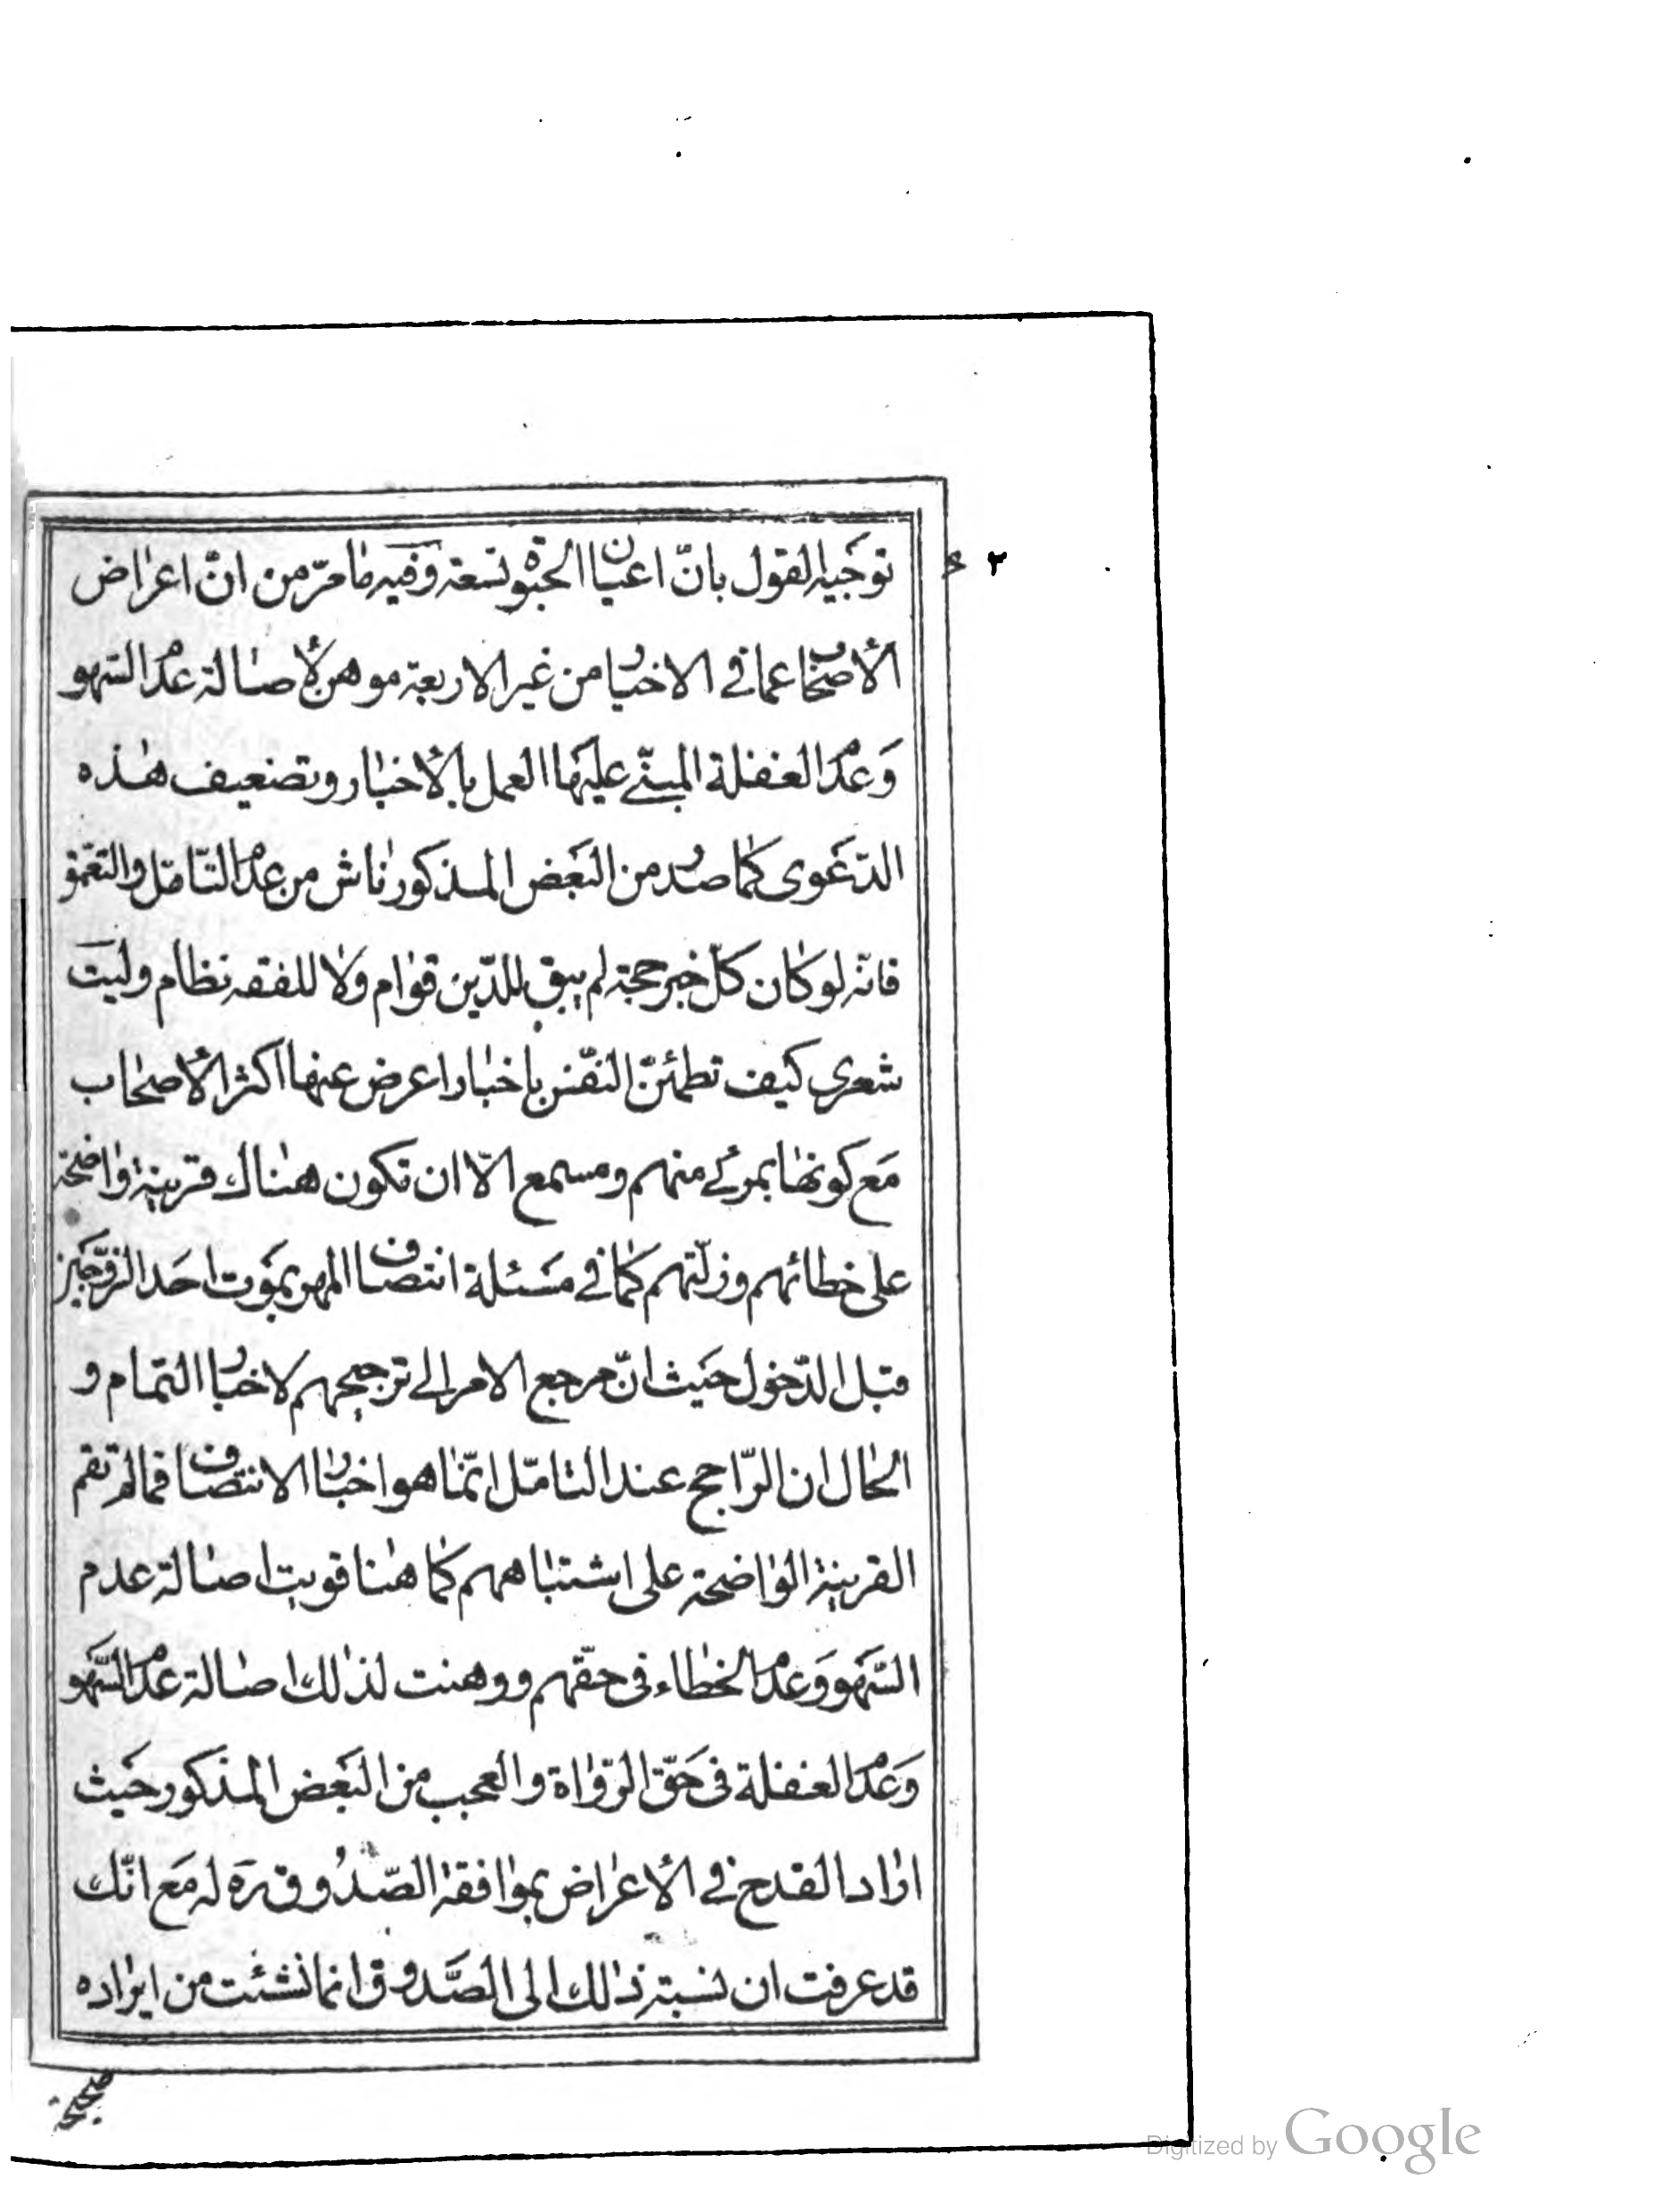 توجيه القول بانّ اعيان الحبوة تسعة وفيه ما مرّ من انّ اعراض
الأصحاب عما في الاخبار من غير الاربعة موهن لأصالة عدم السّهو
وَعدم الغفلة المبنّي عليها العمل بالأخبار وتضعيف هذه
الدّعوى كما صدر من البَعض المذكور ناش من عدم التّامّل والتعمّق
فانّه لو كان كلّ خبر حجة لم يبق للدّين قوام ولا للفقه نظام وليت
شعري كيف تطمئنّ النفس باخبار اعرض عنها اكثر الأصحاب
مَع كونها بمرئ منهم ومسمع الّا ان تكون هناك قرينة واضحة
على خطائهم وزلّتهم كما في مسَئلة انتصاف المهر بموَت احَد الزّوجَين
قبل الدّخول حَيث انّ مرجع الامر الى ترجيحهم لاخبار التمام و
الحال ان الرّاجح عند التامّل انّما هو اخبار الانتصاف فمالم تقم
القرينة الواضحة على اشتباههم كما هنا قويت اصالة عدم
السّهَو وَعدم الخطاء فى حقّهم ووهنت لذلك اصالة عدم السَّهو
وَعدم الغفلة فى حَقّ الرّواة والعجب من البَعض المذكور حَيث
اراد القدح في الأعراض بموافقة الصّدُوق ره له مَع انّك
قد عرفت ان نسبة ذلك الى الصَّدوق انما نشئت من ايراده
صحيحة
٣
Digitized by Google